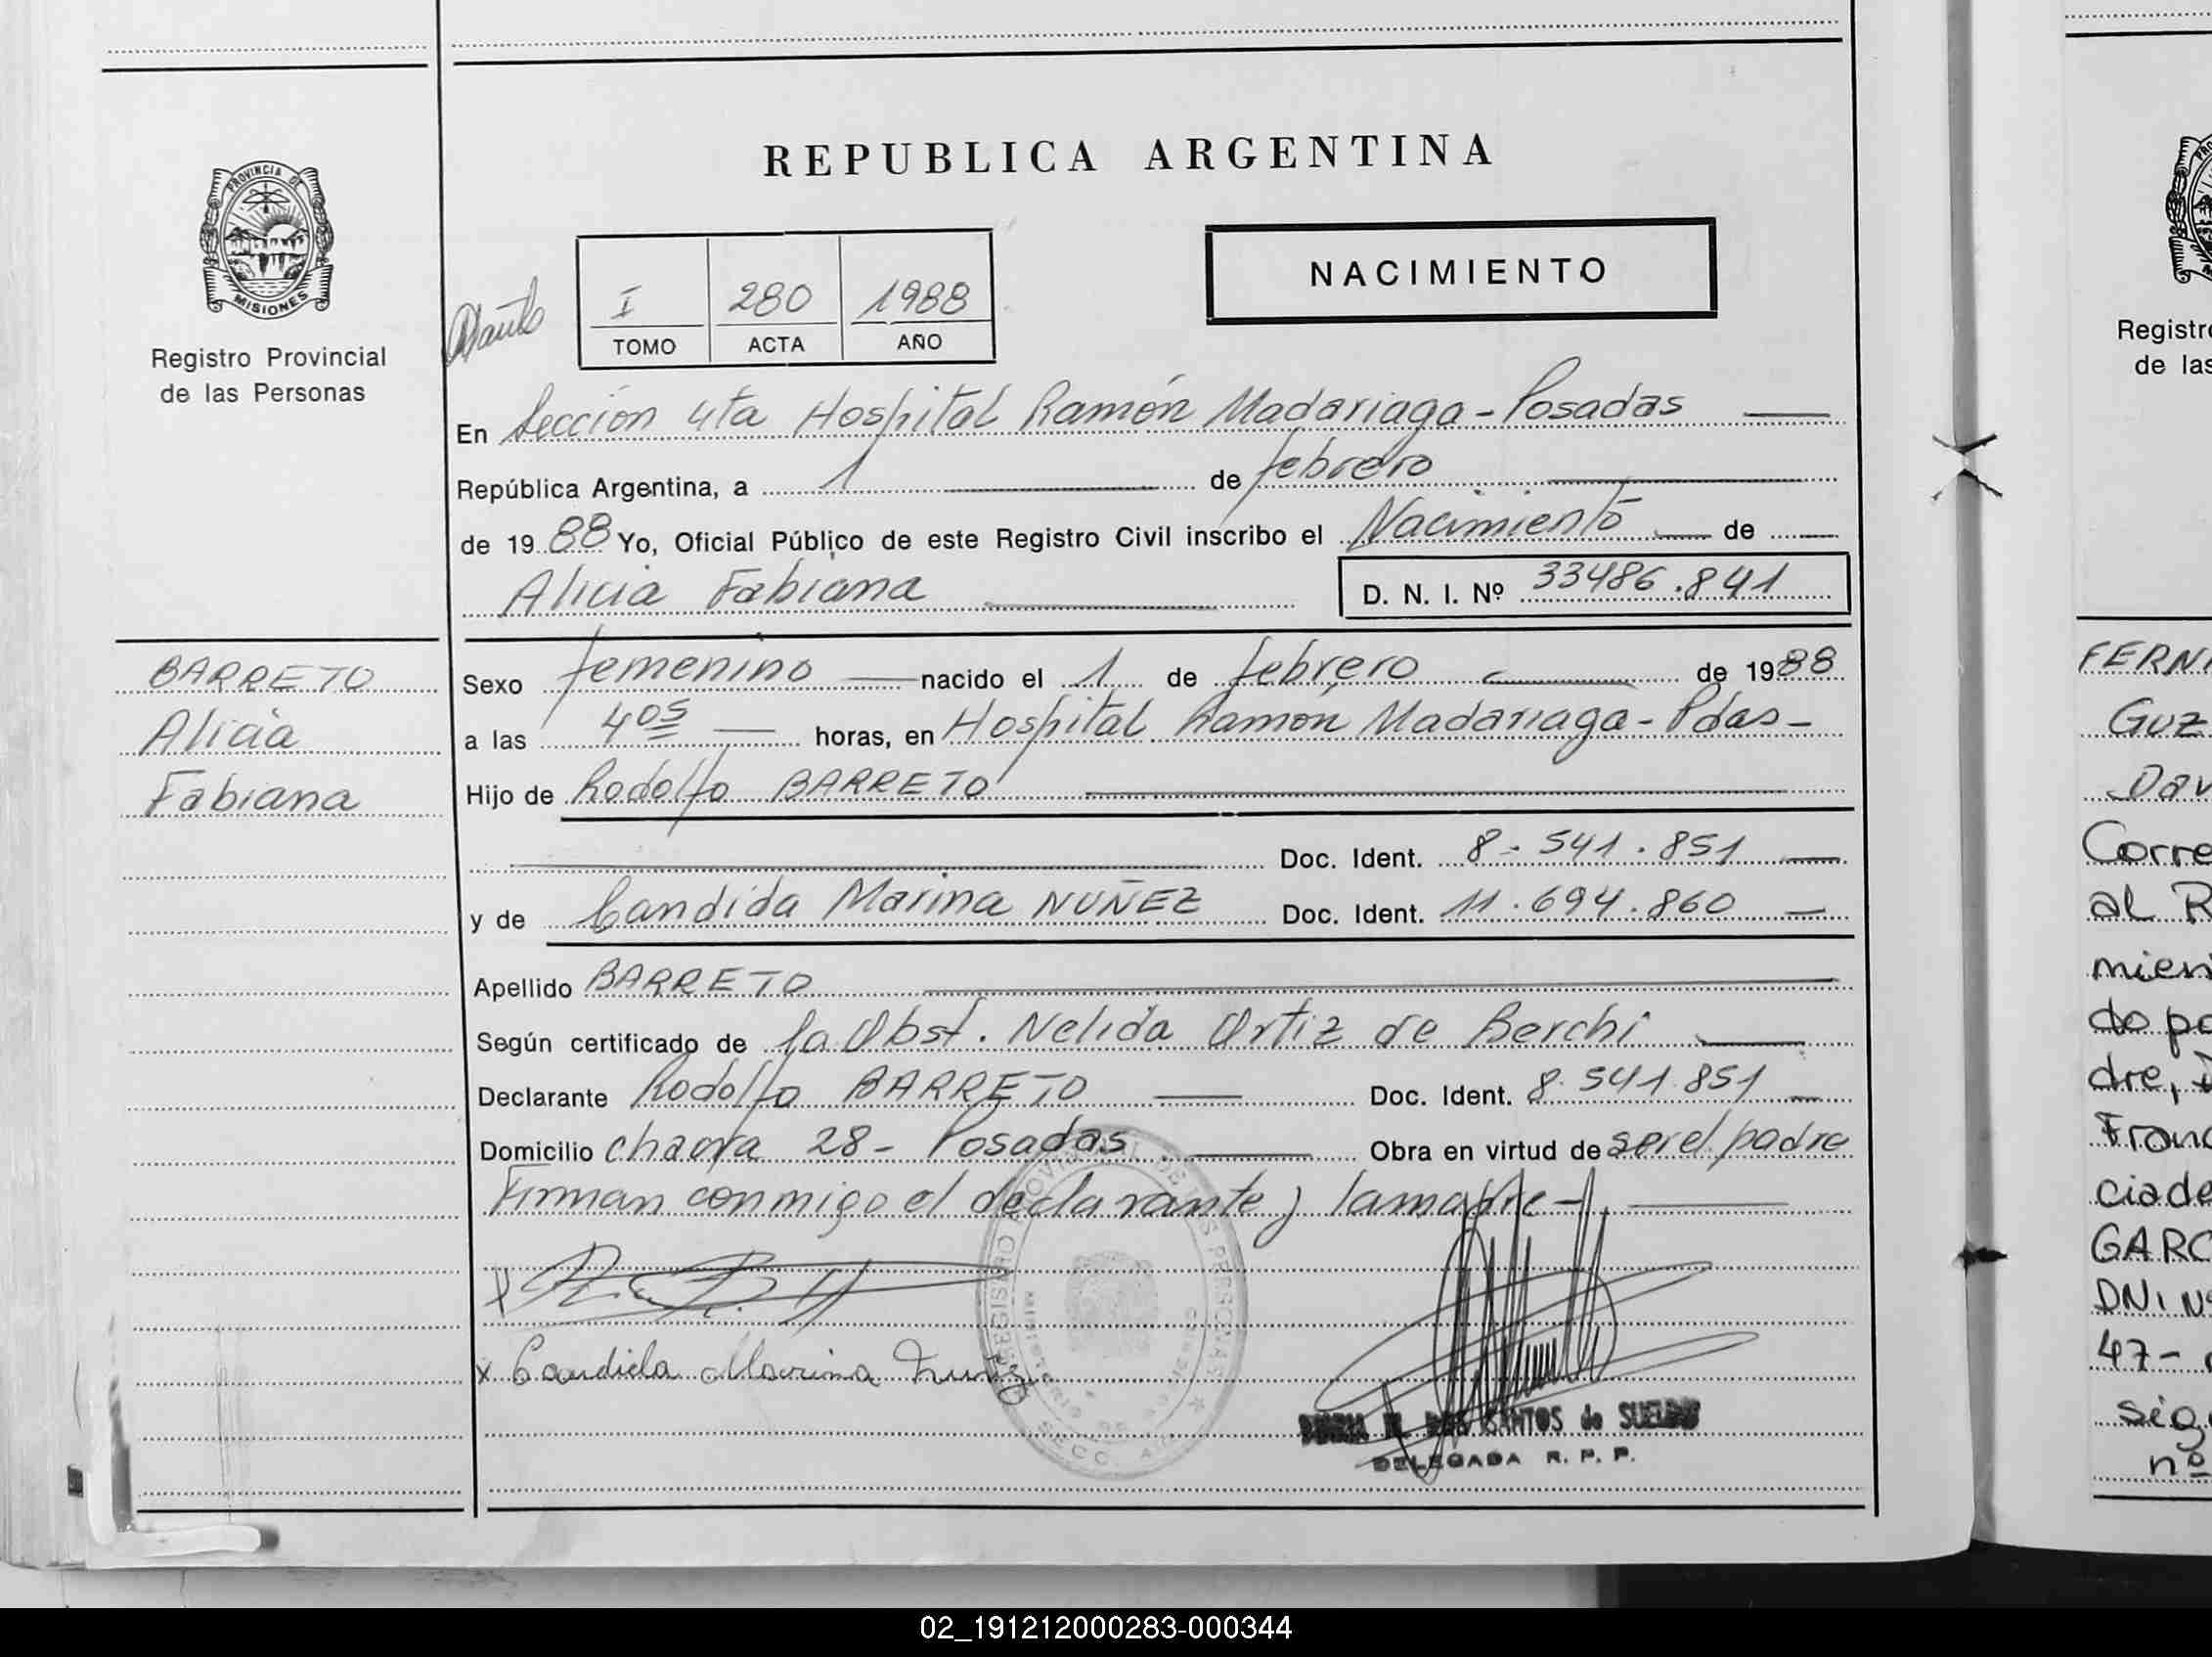 REPUBLICA ARGENTINA
PROVINCIA DE
MISIONES
Registro Provincial
de las Personas
I 280 1988
TOMO ACTA AÑO
NACIMIENTO
En Sección 4ta Hospital Ramón Madariaga - Posadas
República Argentina, a 1 de febrero
de 1988 Yo, Oficial Público de este Registro Civil inscribo el Nacimiento de
Alicia Fabiana D. N. I. Nº 33486.841
BARRETO
Alicia
Fabiana
Sexo femenino nacido el 1 de febrero de 1988
a las 4 05 horas, en Hospital Ramón Madariaga - Pdas -
Hijo de Rodolfo BARRETO
Doc. Ident. 8.541.851
y de Candida Marina NUÑEZ Doc. Ident. 11.694.860
Apellido BARRETO
Según certificado de la Obst. Nelida Ortiz de Berchi
Declarante Rodolfo BARRETO Doc. Ident. 8.541.851
Domicilio chacra 28 - Posadas Obra en virtud de ser el padre
Firman conmigo el declarante y la madre -
x Candida Marina Nuñez
REGISTRO PROVINCIAL DE LAS PERSONAS
MINISTERIO DE GOBIERNO
SANTOS de SUELDO
DELEGADA R. P. P.
Registr
de las
FERN
GUZ
Dav
Corre
al R
mien
do po
dre,
Franc
ciade
GARC
DNI Nº
47-
sig
nº
02_191212000283-000344